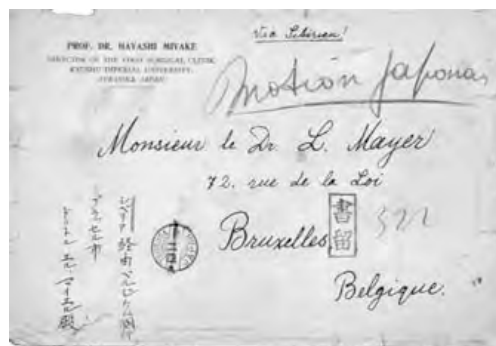 PROF. DR. HAYASHI MIYAKE
DIRECTOR OF THE FIRST SURGICAL CLINIC,
KYUSHU IMPERIAL UNIVERSITY,
FUKUOKA, JAPAN
Via Siberien!
Motion Japonais
Monsieur le Dr. L. Mayer
72. rue de la Loi
Bruxelles
書留
Belgique.
シベリア経由ベルギウム国行
ブルッセル市
ドクトル エル、マイエル殿